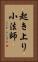 起き上り
小法師